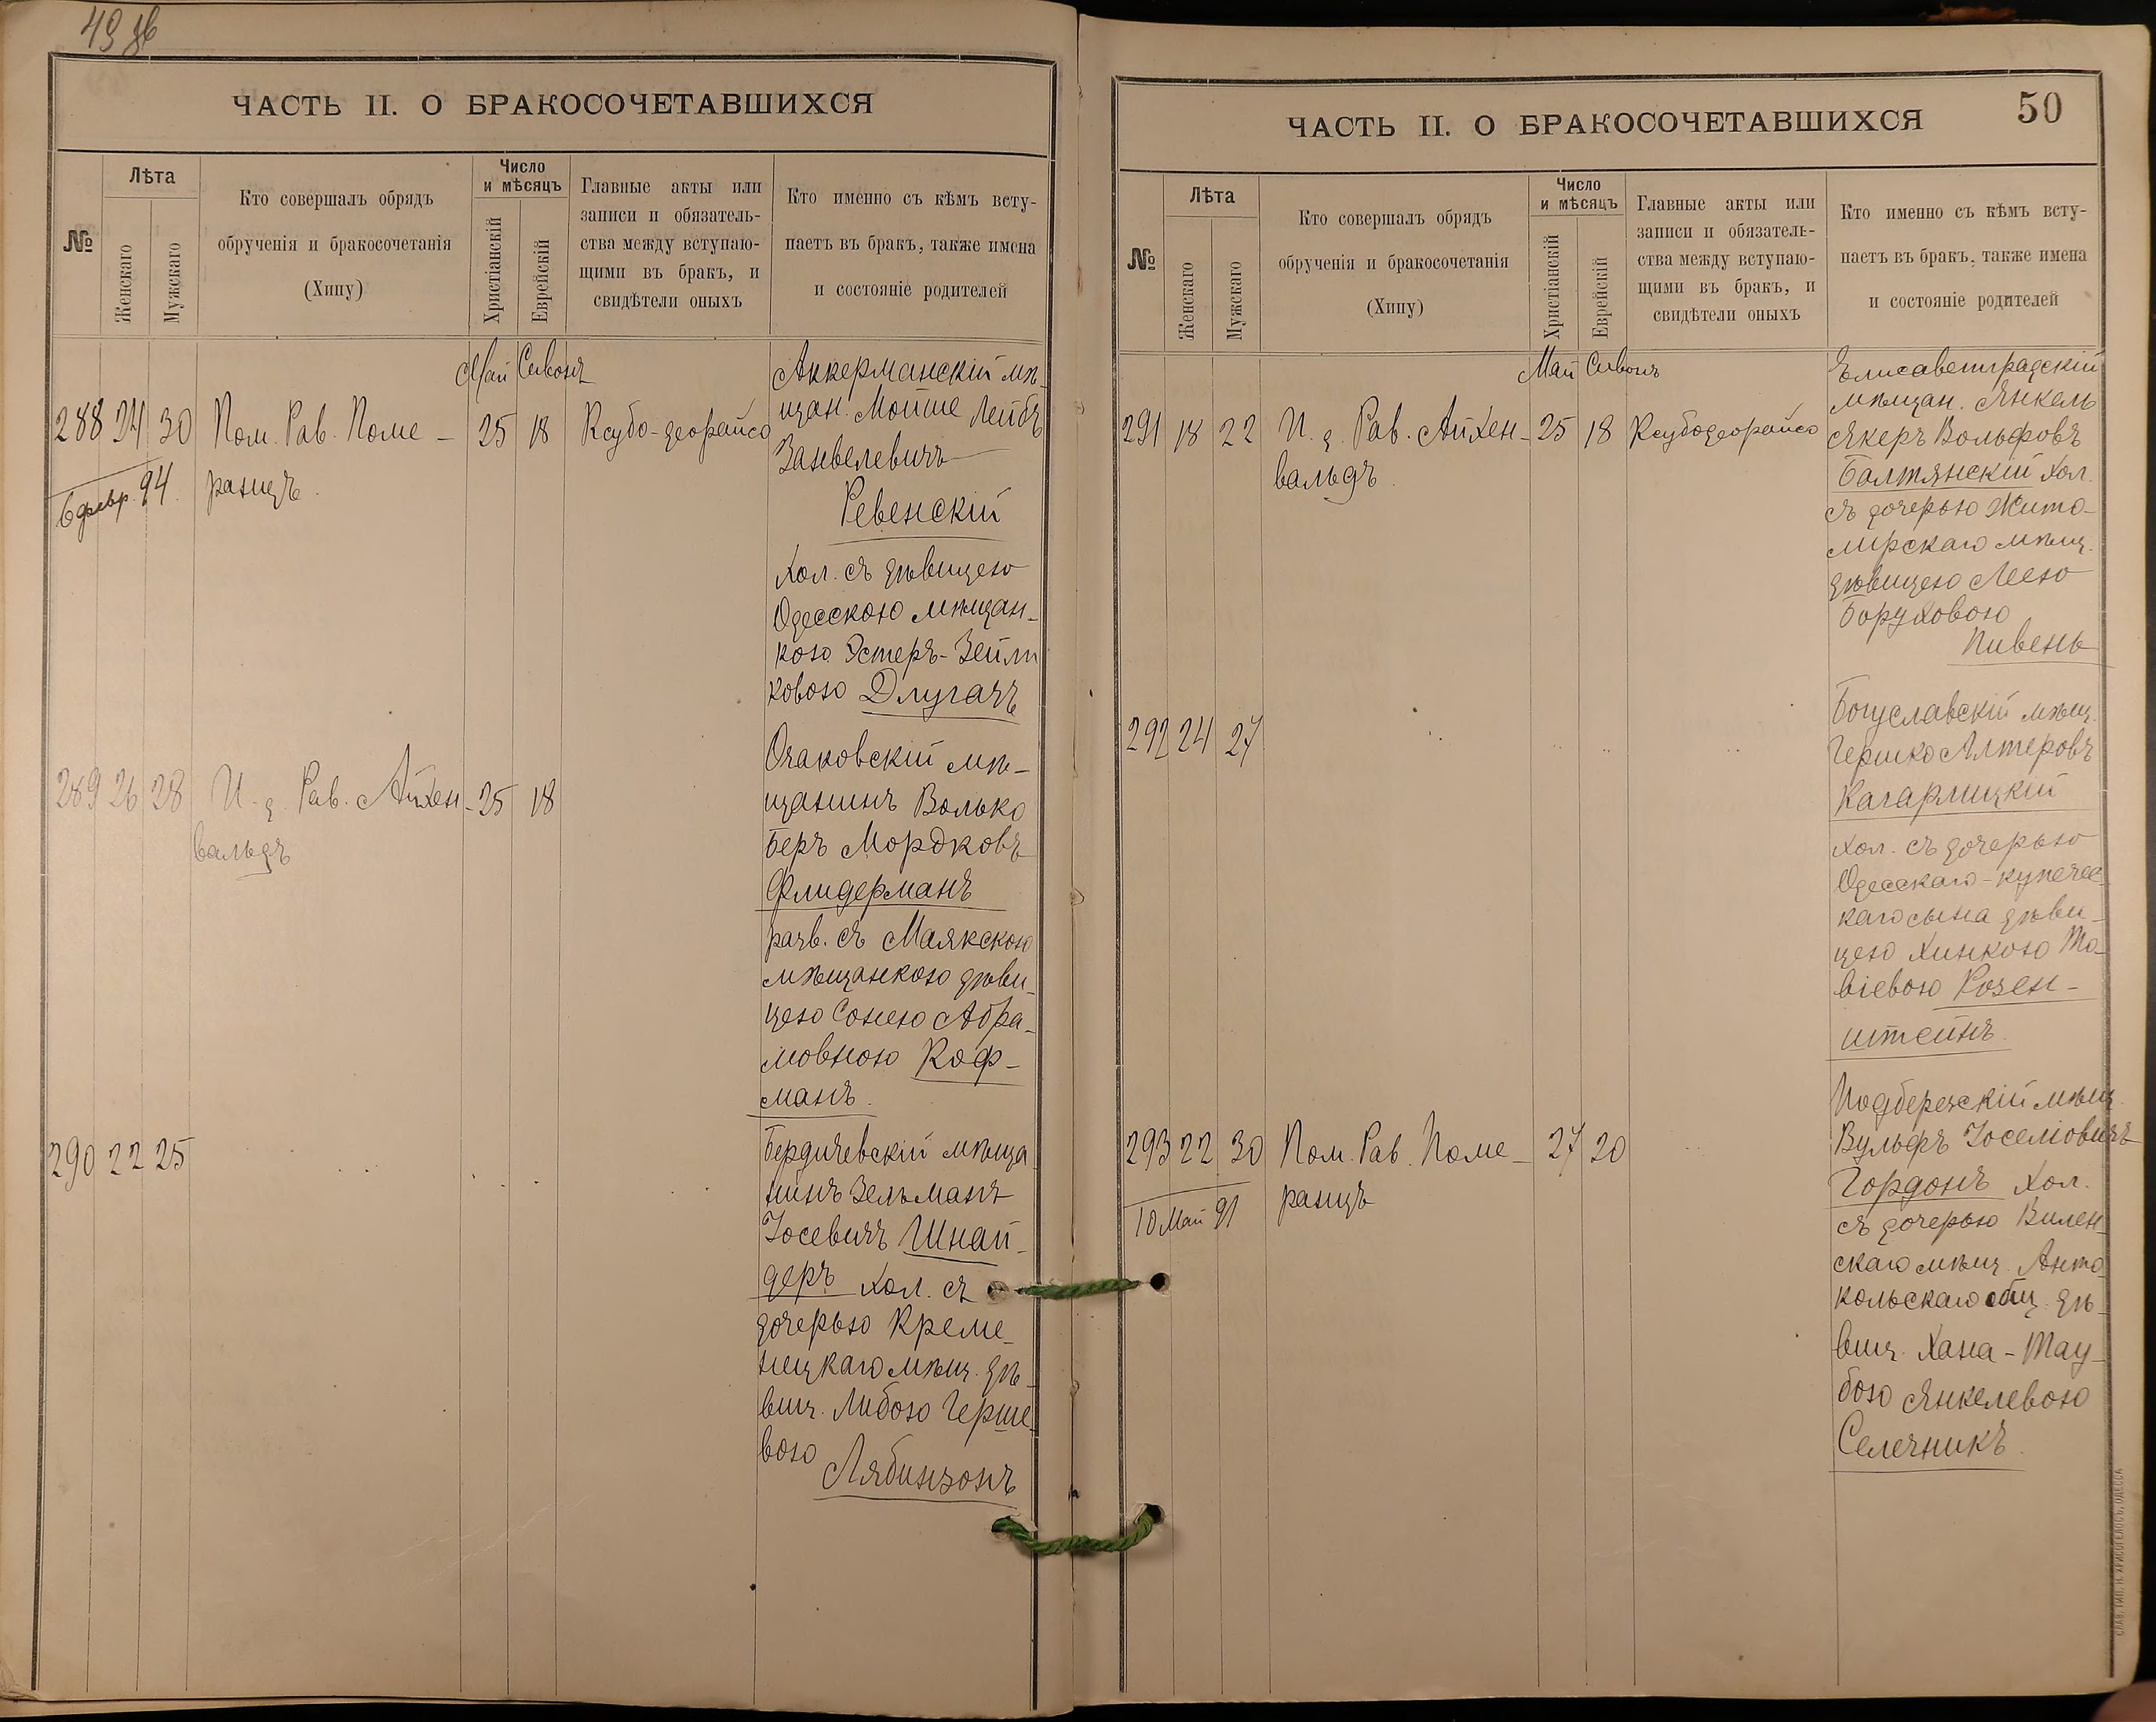 49 об
ЧАСТЬ II. О БРАКОСОЧЕТАВШИХСЯ
№
Лѣта
Женскаго
Мужскаго
Кто совершалъ обрядъ
обрученія и бракосочетанія
(Хипу)
Число
и мѣсяцъ
Христіанскій
Еврейскій
Главные акты или
записи и обязатель-
ства между вступаю-
щими въ бракъ, и
свидѣтели оныхъ
Кто именно съ кѣмъ всту-
паетъ въ бракъ, также имена
и состояніе родителей
Май Сивонъ
288 24 30 Пом. Рав. Поме- 25 18 Ксубо-деорайсо
6 февр. 94. ранцъ.
Аккерманскій мѣ-
щан. Мойше Лейбъ
Занвелевичъ
Ревенскій
Хол. съ дѣвицею
Одесскою мѣщан-
кою Эстеръ-Зейли
ковою Длугачъ
289 26 28 И. д. Рав. Айхен- 25 18
вальдъ
Очаковскій мѣ-
щанинъ Волько
Беръ Мордковъ
Флидерманъ
разв. съ Маякскою
мѣщанкою дѣви-
цею Сонею Абра-
мовною Коф-
манъ.
290 22 25
Бердичевскій мѣща
нинъ Зельманъ
Іосевичъ Шнай-
деръ хол. съ
дочерью Креме-
нецкаго мѣщ. дѣ-
виц. Либою Герше
вою
Лябинзонъ
ЧАСТЬ II. О БРАКОСОЧЕТАВШИХСЯ
50
№
Лѣта
Женскаго
Мужскаго
Кто совершалъ обрядъ
обрученія и бракосочетанія
(Хипу)
Число
и мѣсяцъ
Христіанскій
Еврейскій
Главные акты или
записи и обязатель-
ства между вступаю-
щими въ бракъ, и
свидѣтели оныхъ
Кто именно съ кѣмъ всту-
паетъ въ бракъ, также имена
и состояніе родителей
Май Сивонъ
291 18 22 И. д. Рав. Айхен- 25 18 Ксубодеорайсо
вальдъ.
Елисаветградскій
мѣщан. Янкель
Якеръ Вольфовъ
Балтянскій хол.
съ дочерью Жито-
мирскаго мѣщ.
дѣвицею Леею
Боруховою
Пивень
292 24 27
Богуславскій мѣщ.
Гершко Алтеровъ
Кагарлицкій
хол. съ дочерью
Одесскаго-купечес
каго сына дѣви-
цею Хинкою То-
віевою Розен-
штейнъ.
293 22 30 Пом. Рав. Поме- 27 20
10 Май 91 ранцъ
Подберезскій мѣщ
Вульфъ Іоселіовичъ
Гордонъ хол.
съ дочерью Вилен
скаго мѣщ. Анто
кольскаго общ. дѣ-
виц. Хана-Тау-
бою Янкелевою
Селечникъ.
СЛАВ. ТИП. Н. ХРИСОГЕЛОСЪ, ОДЕССА